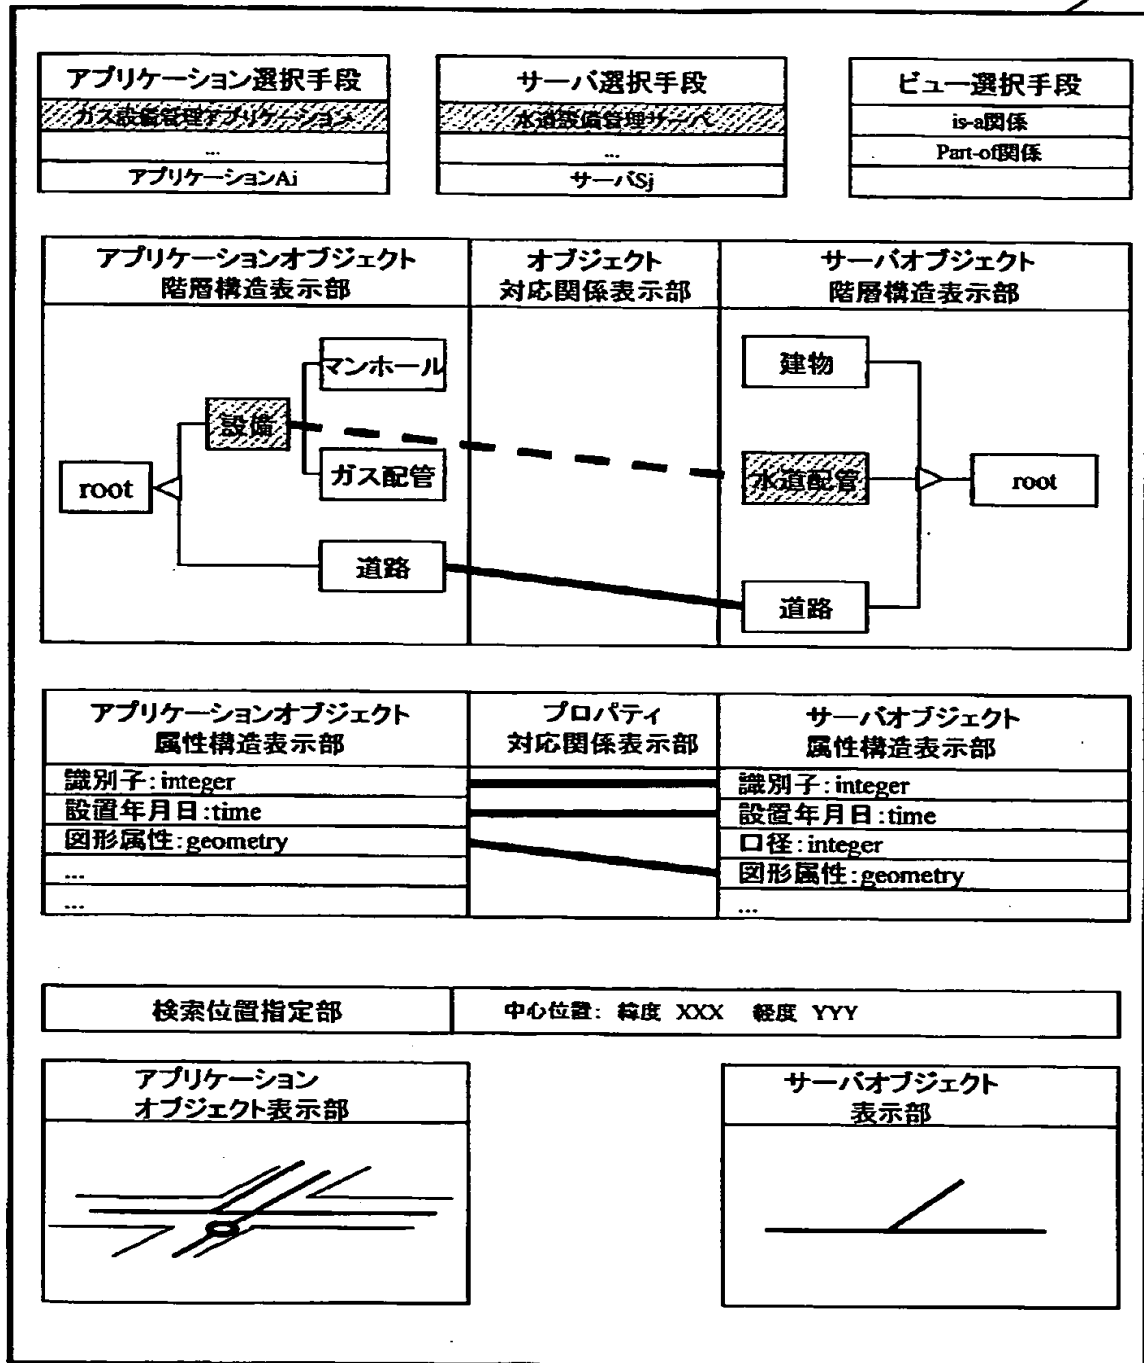 アプリケーション選択手段
ガス設備管理アプリケーション
...
アプリケーションAi
サーバ選択手段
水道設備管理サーバ
...
サーバSj
ビュー選択手段
is-a関係
Part-of関係
アプリケーションオブジェクト
階層構造表示部
オブジェクト
対応関係表示部
サーバオブジェクト
階層構造表示部
マンホール
設備
ガス配管
root
道路
建物
水道配管
root
道路
アプリケーションオブジェクト
属性構造表示部
プロパティ
対応関係表示部
サーバオブジェクト
属性構造表示部
識別子:integer
設置年月日:time
図形属性:geometry
...
...
識別子:integer
設置年月日:time
口径:integer
図形属性:geometry
...
検索位置指定部
中心位置: 緯度 XXX 経度 YYY
アプリケーション
オブジェクト表示部
サーバオブジェクト
表示部